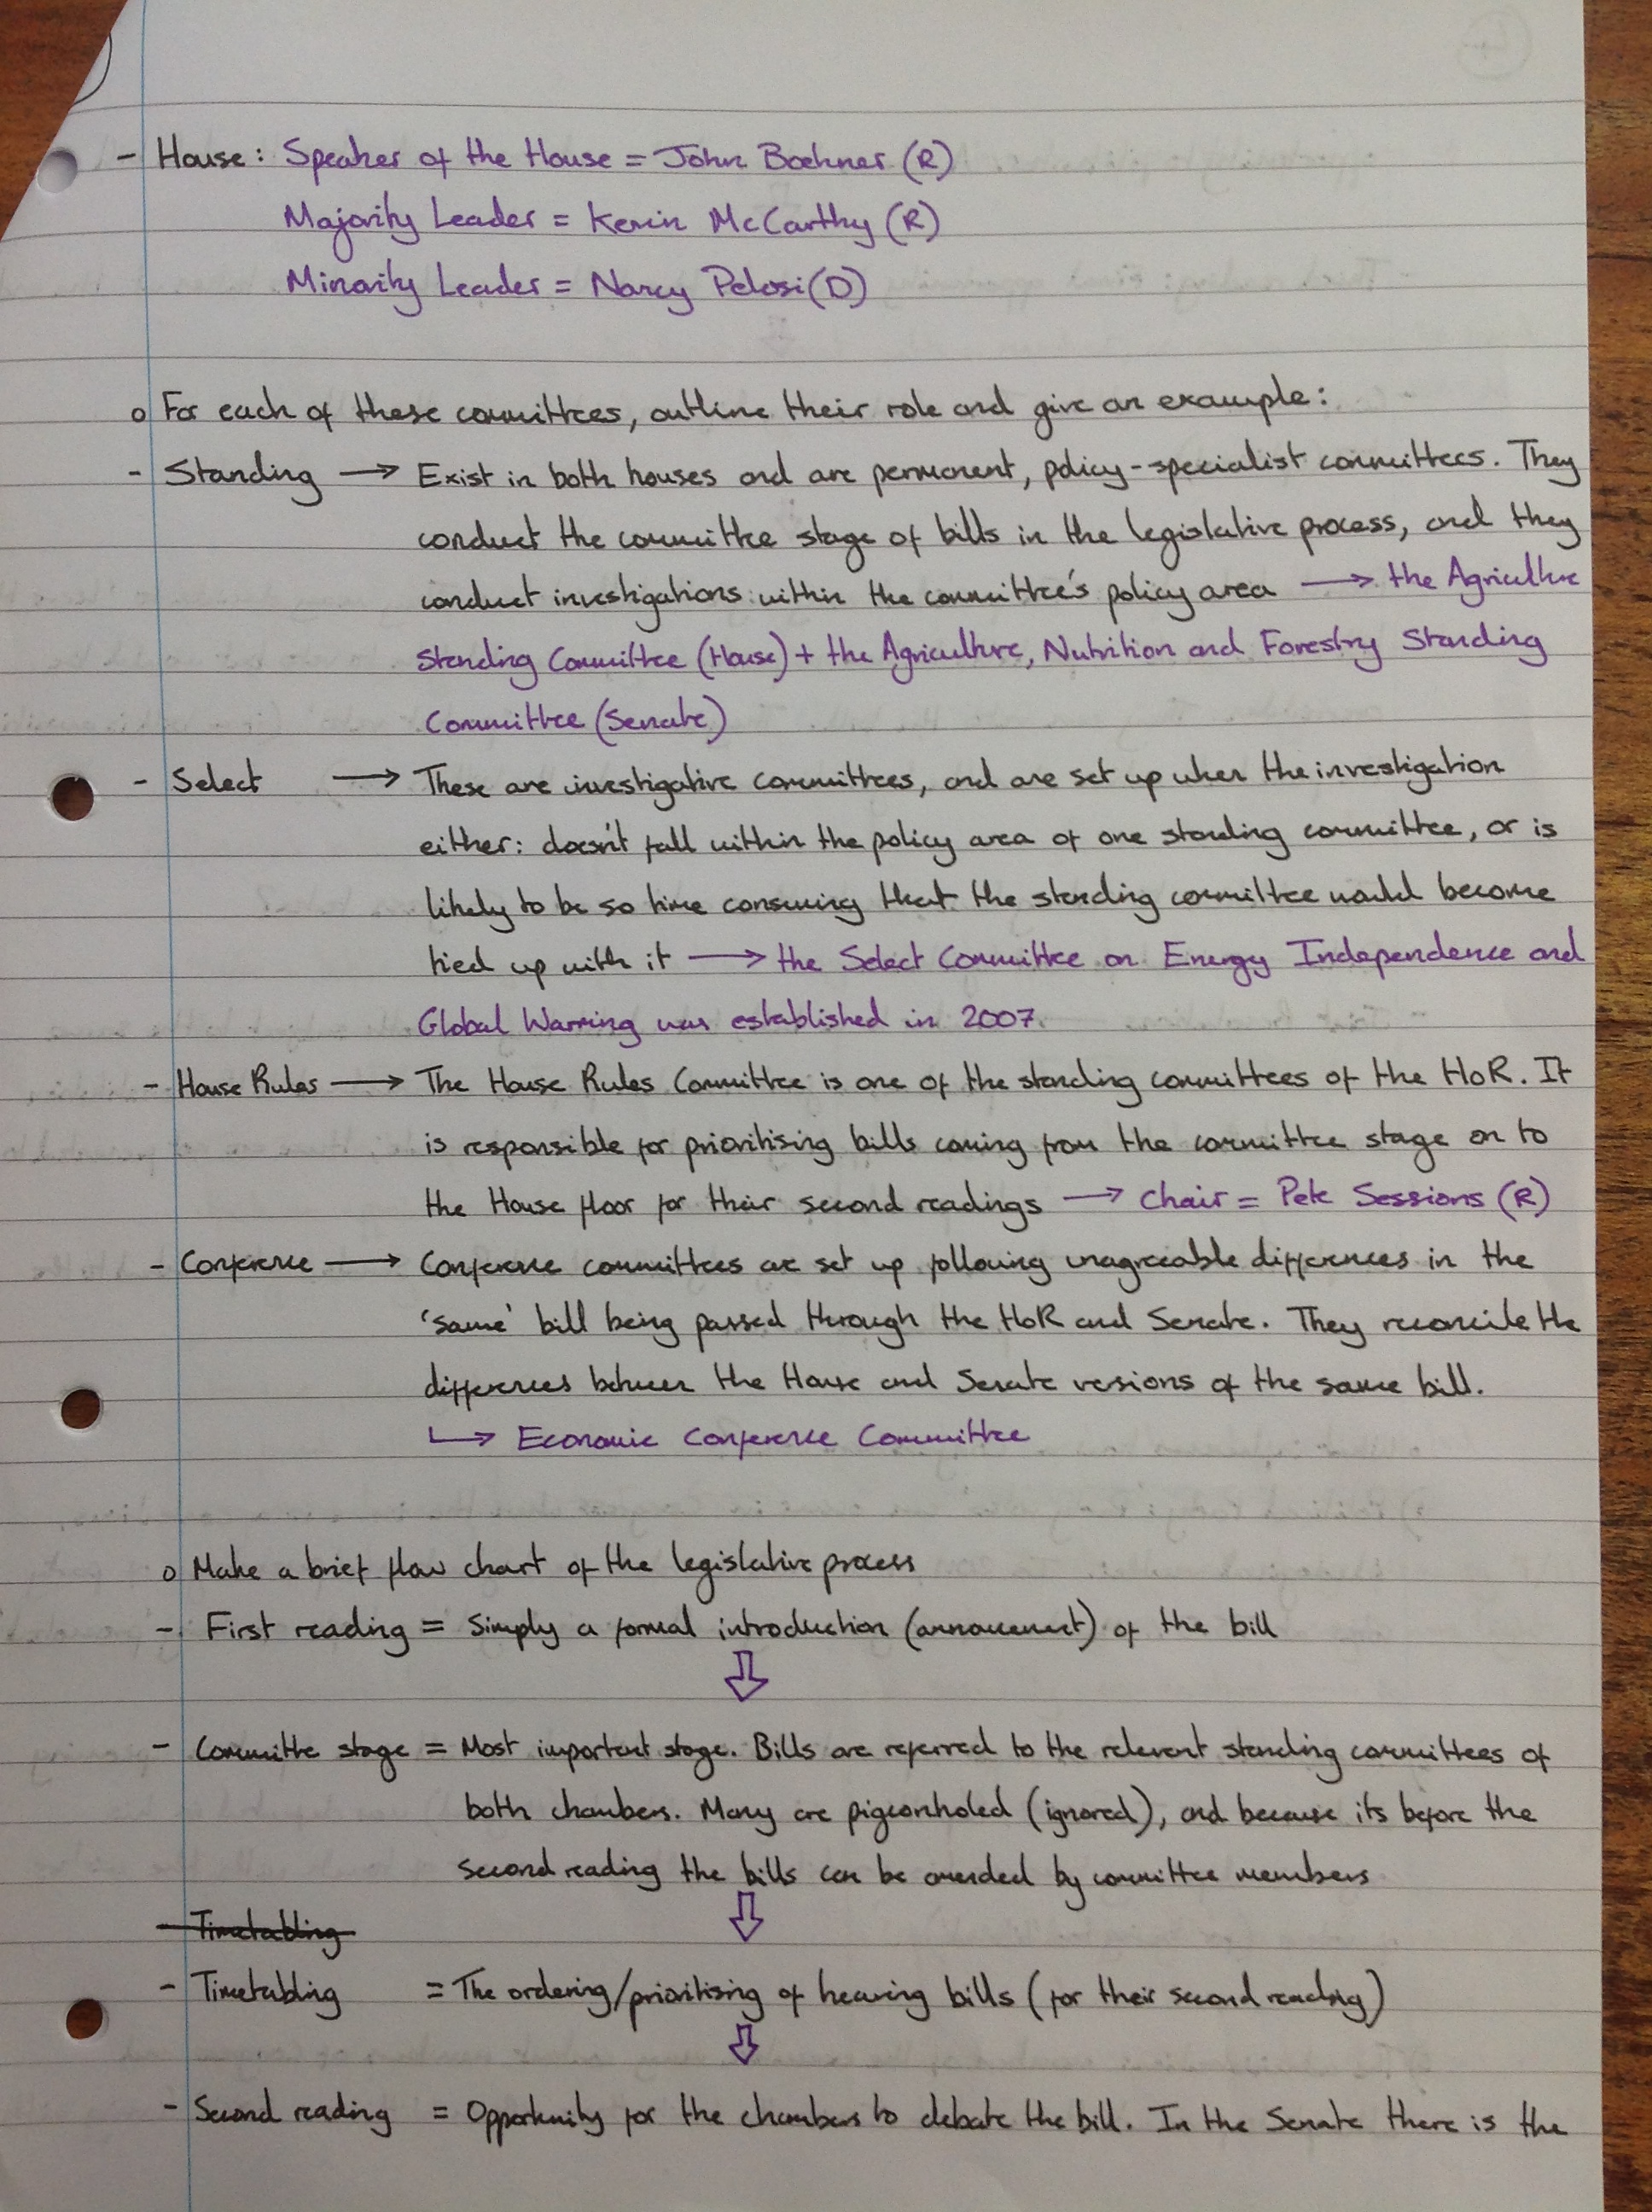 - House: Speaker of the House = John Boehner (R)
Majority Leader = Kevin McCarthy (R)
Minority Leader = Nancy Pelosi (D)
o For each of these committees, outline their role and give an example:
- Standing → Exist in both houses and are permanent, policy-specialist committees. They
conduct the committee stage of bills in the legislative process, and they
conduct investigations within the committee's policy area → the Agriculture
Standing Committee (House) + the Agriculture, Nutrition and Forestry Standing
Committee (Senate)
- Select → These are investigative committees, and are set up when the investigation
either: doesn't fall within the policy area of one standing committee, or is
likely to be so time consuming that the standing committee would become
tied up with it → the Select Committee on Energy Independence and
Global Warming was established in 2007.
- House Rules → The House Rules Committee is one of the standing committees of the HoR. It
is responsible for prioritising bills coming from the committee stage on to
the House floor for their second readings → Chair = Pete Sessions (R)
- Conference → Conference committees are set up following unagreeable differences in the
'same' bill being passed through the HoR and Senate. They reconcile the
differences between the House and Senate versions of the same bill.
↳ Economic Conference Committee
o Make a brief flow chart of the legislative process
- First reading = Simply a formal introduction (announcement) of the bill
⇩
- Committe stage = Most important stage. Bills are referred to the relevent standing committees of
both chambers. Many are pigeonholed (ignored), and because its before the
second reading the bills can be amended by committee members
⇩
- Timetabling
- Timetabling = The ordering/prioritising of hearing bills (for their second reading)
⇩
- Second reading = Opportunity for the chambers to debate the bill. In the Senate there is the